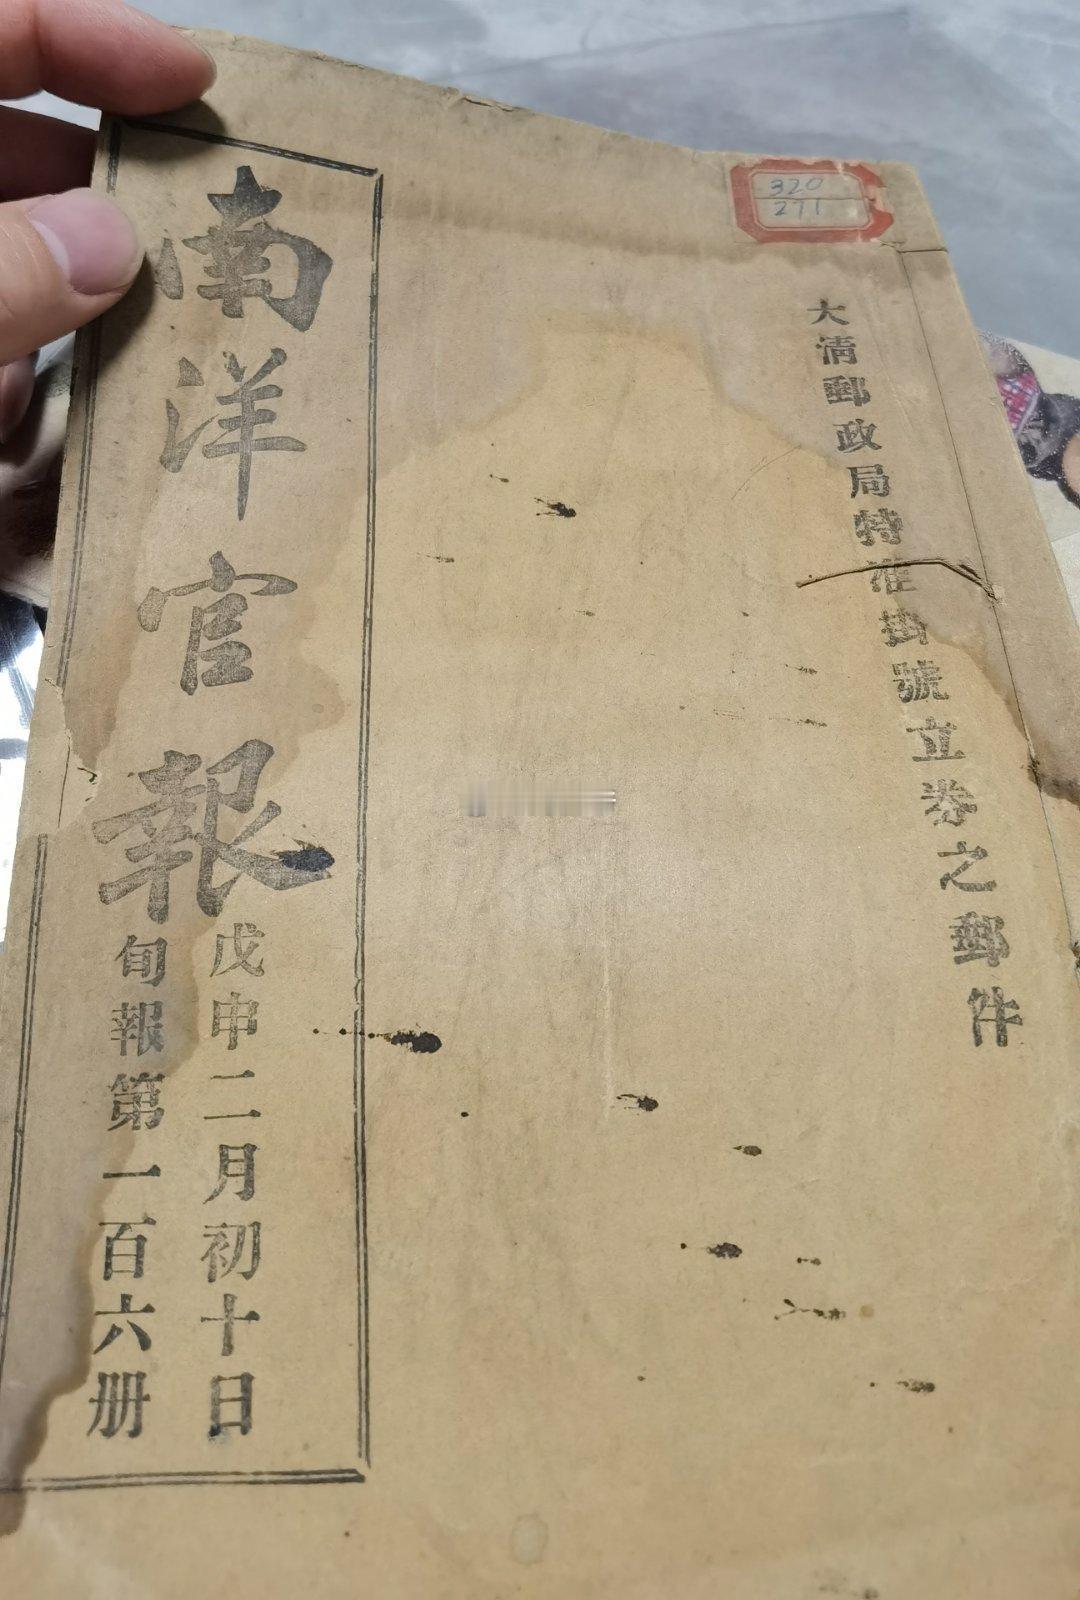 大清郵政局特准掛號立券之郵件
南洋官報
戊申二月初十日
旬報第一百六册
320
271